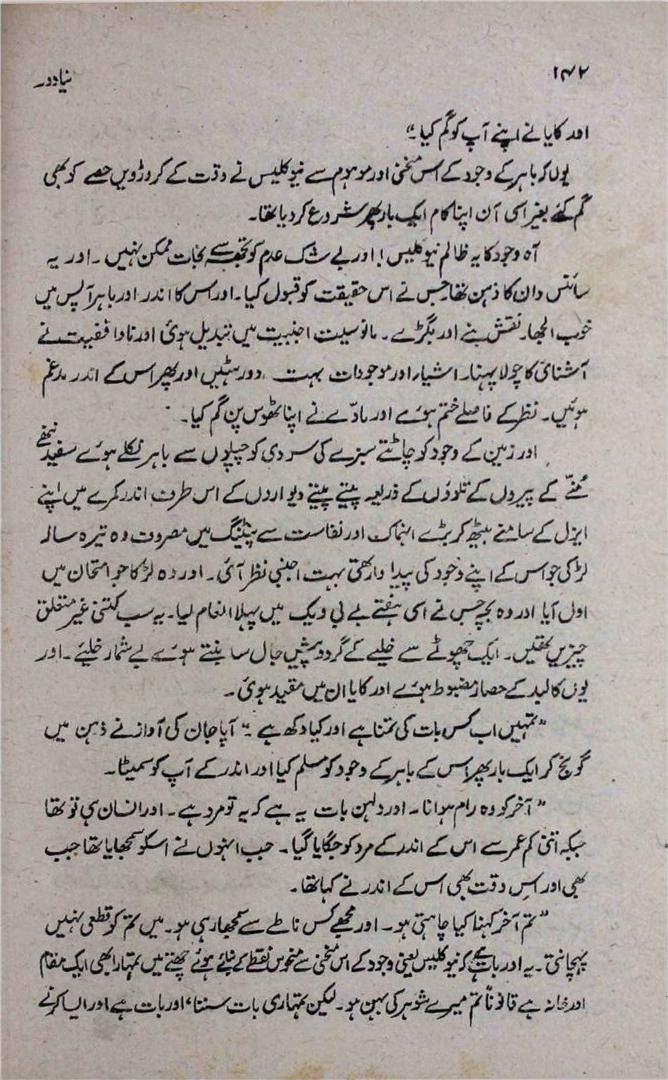 ۱۴۲
نیا دور
اور کایا نے اپنے آپ کو گم کیا۔"
یوں کہ باہر کے وجود کے اس منحنی اور موہوم سے نیوکلیس نے وقت کے کروڑویں حصے کو بھی
گم کئے بغیر اسی آن اپنا کام ایک بار پھر شروع کر دیا تھا۔
آہ وجود کا یہ ظالم نیوکلیس! اور بے شک عدم کو تجھ سے نجات ممکن نہیں۔ اور یہ
سائنس دان کا ذہن تھا جس نے اس حقیقت کو قبول کیا۔ اور اس کا اندر اور باہر آپس میں
خوب الجھا۔ نقش بنے اور بگڑے۔ مانوسیت اجنبیت میں تبدیل ہوئی اور ناواقفیت نے
آشنائی کا چولا پہنا۔ اشیار اور موجودات بہت دور ہٹیں اور پھر اس کے اندر مدغم
ہوئیں۔ نظر کے فاصلے ختم ہوئے اور مادّے نے اپنا ٹھوس پن گم کیا۔
اور زمین کے وجود کو چاٹتے سبزے کی سردی کو چپلوں سے باہر نکلے ہوئے سفید ننھے
مُنّے کے پیروں کے تلوؤں کے ذریعہ پیتے پیتے دیواروں کے اس طرف اندر کمرے میں اپنے
ایزل کے سامنے بیٹھ کر بڑے انہماک اور نفاست سے پینٹنگ میں مصروف وہ تیرہ سالہ
لڑکی جو اس کے اپنے وجود کی پیدا وار تھی بہت اجنبی نظر آئی۔ اور وہ لڑکا جو امتحان میں
اول آیا اور وہ بچہ جس نے اسی ہفتے بے بی ویک میں پہلا انعام لیا۔ یہ سب کتنی غیر متعلق
چیزیں تھیں۔ ایک چھوٹے سے خلیے کے گرد و پیش جال سا بنتے ہوئے بے شمار خلیے۔ اور
یوں کالبد کے حصار مضبوط ہوئے اور کایا ان میں مقید ہوئی۔
"تمہیں اب کس بات کی تمنا ہے اور کیا دکھ ہے۔" آپا جان کی آواز نے ذہن میں
گونج کر ایک بار پھر اس کے باہر کے وجود کو مسلم کیا اور اندر کے آپ کو سمیٹا۔
"آخر کو وہ رام ہوا نا۔ اور دلہن بات یہ ہے کہ یہ تو مرد ہے۔ اور انسان ہی تو تھا
جبکہ اتنی کم عمر سے اس کے اندر کے مرد کو جگایا گیا۔ جب انہوں نے اسکو سمجھایا تھا جب
بھی اور اس وقت بھی اس کے اندر نے کہا تھا۔
"تم آخر کہنا کیا چاہتی ہو۔ اور مجھے کس ناطے سے سمجھا رہی ہو۔ میں تم کو قطعی نہیں
پہچانتی۔ یہ اور بات ہے کہ نیوکلیس یعنی وجود کے اس منحنی سے منحوس نقطے کے بنائے ہوئے چھتے میں تمہارا بھی ایک مقام
اور خانہ ہے قانوناً تم میرے شوہر کی بہن ہو۔ لیکن تمہاری بات سننا، اور بات ہے اور ایسا کرنے